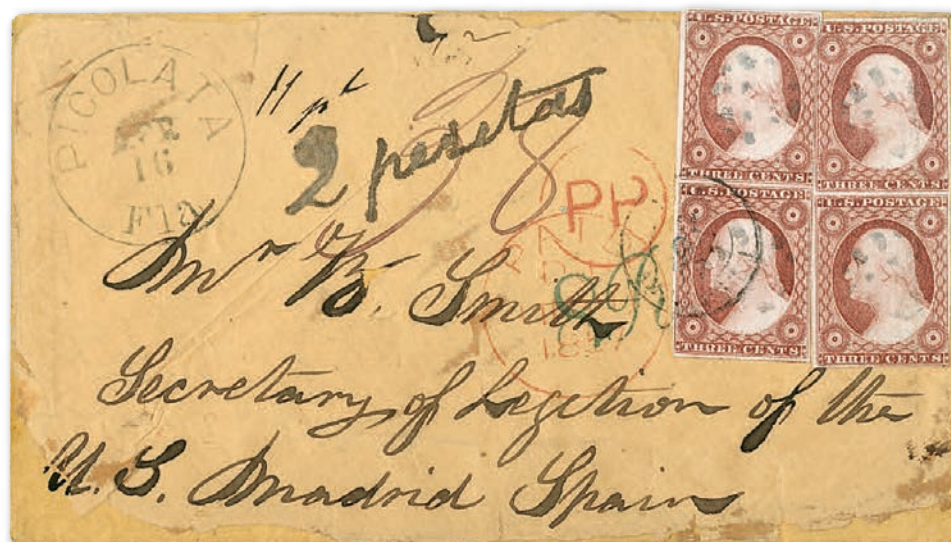 PICOLATA
16
Fla
2 pesetas
38
PP
PAID
U.S. POSTAGE
THREE CENTS
U.S. POSTAGE
THREE CENTS
U.S. POSTAGE
THREE CENTS
U.S. POSTAGE
THREE CENTS
Mr B. Smith
Secretary of Legation of the
U. S. Madrid Spain